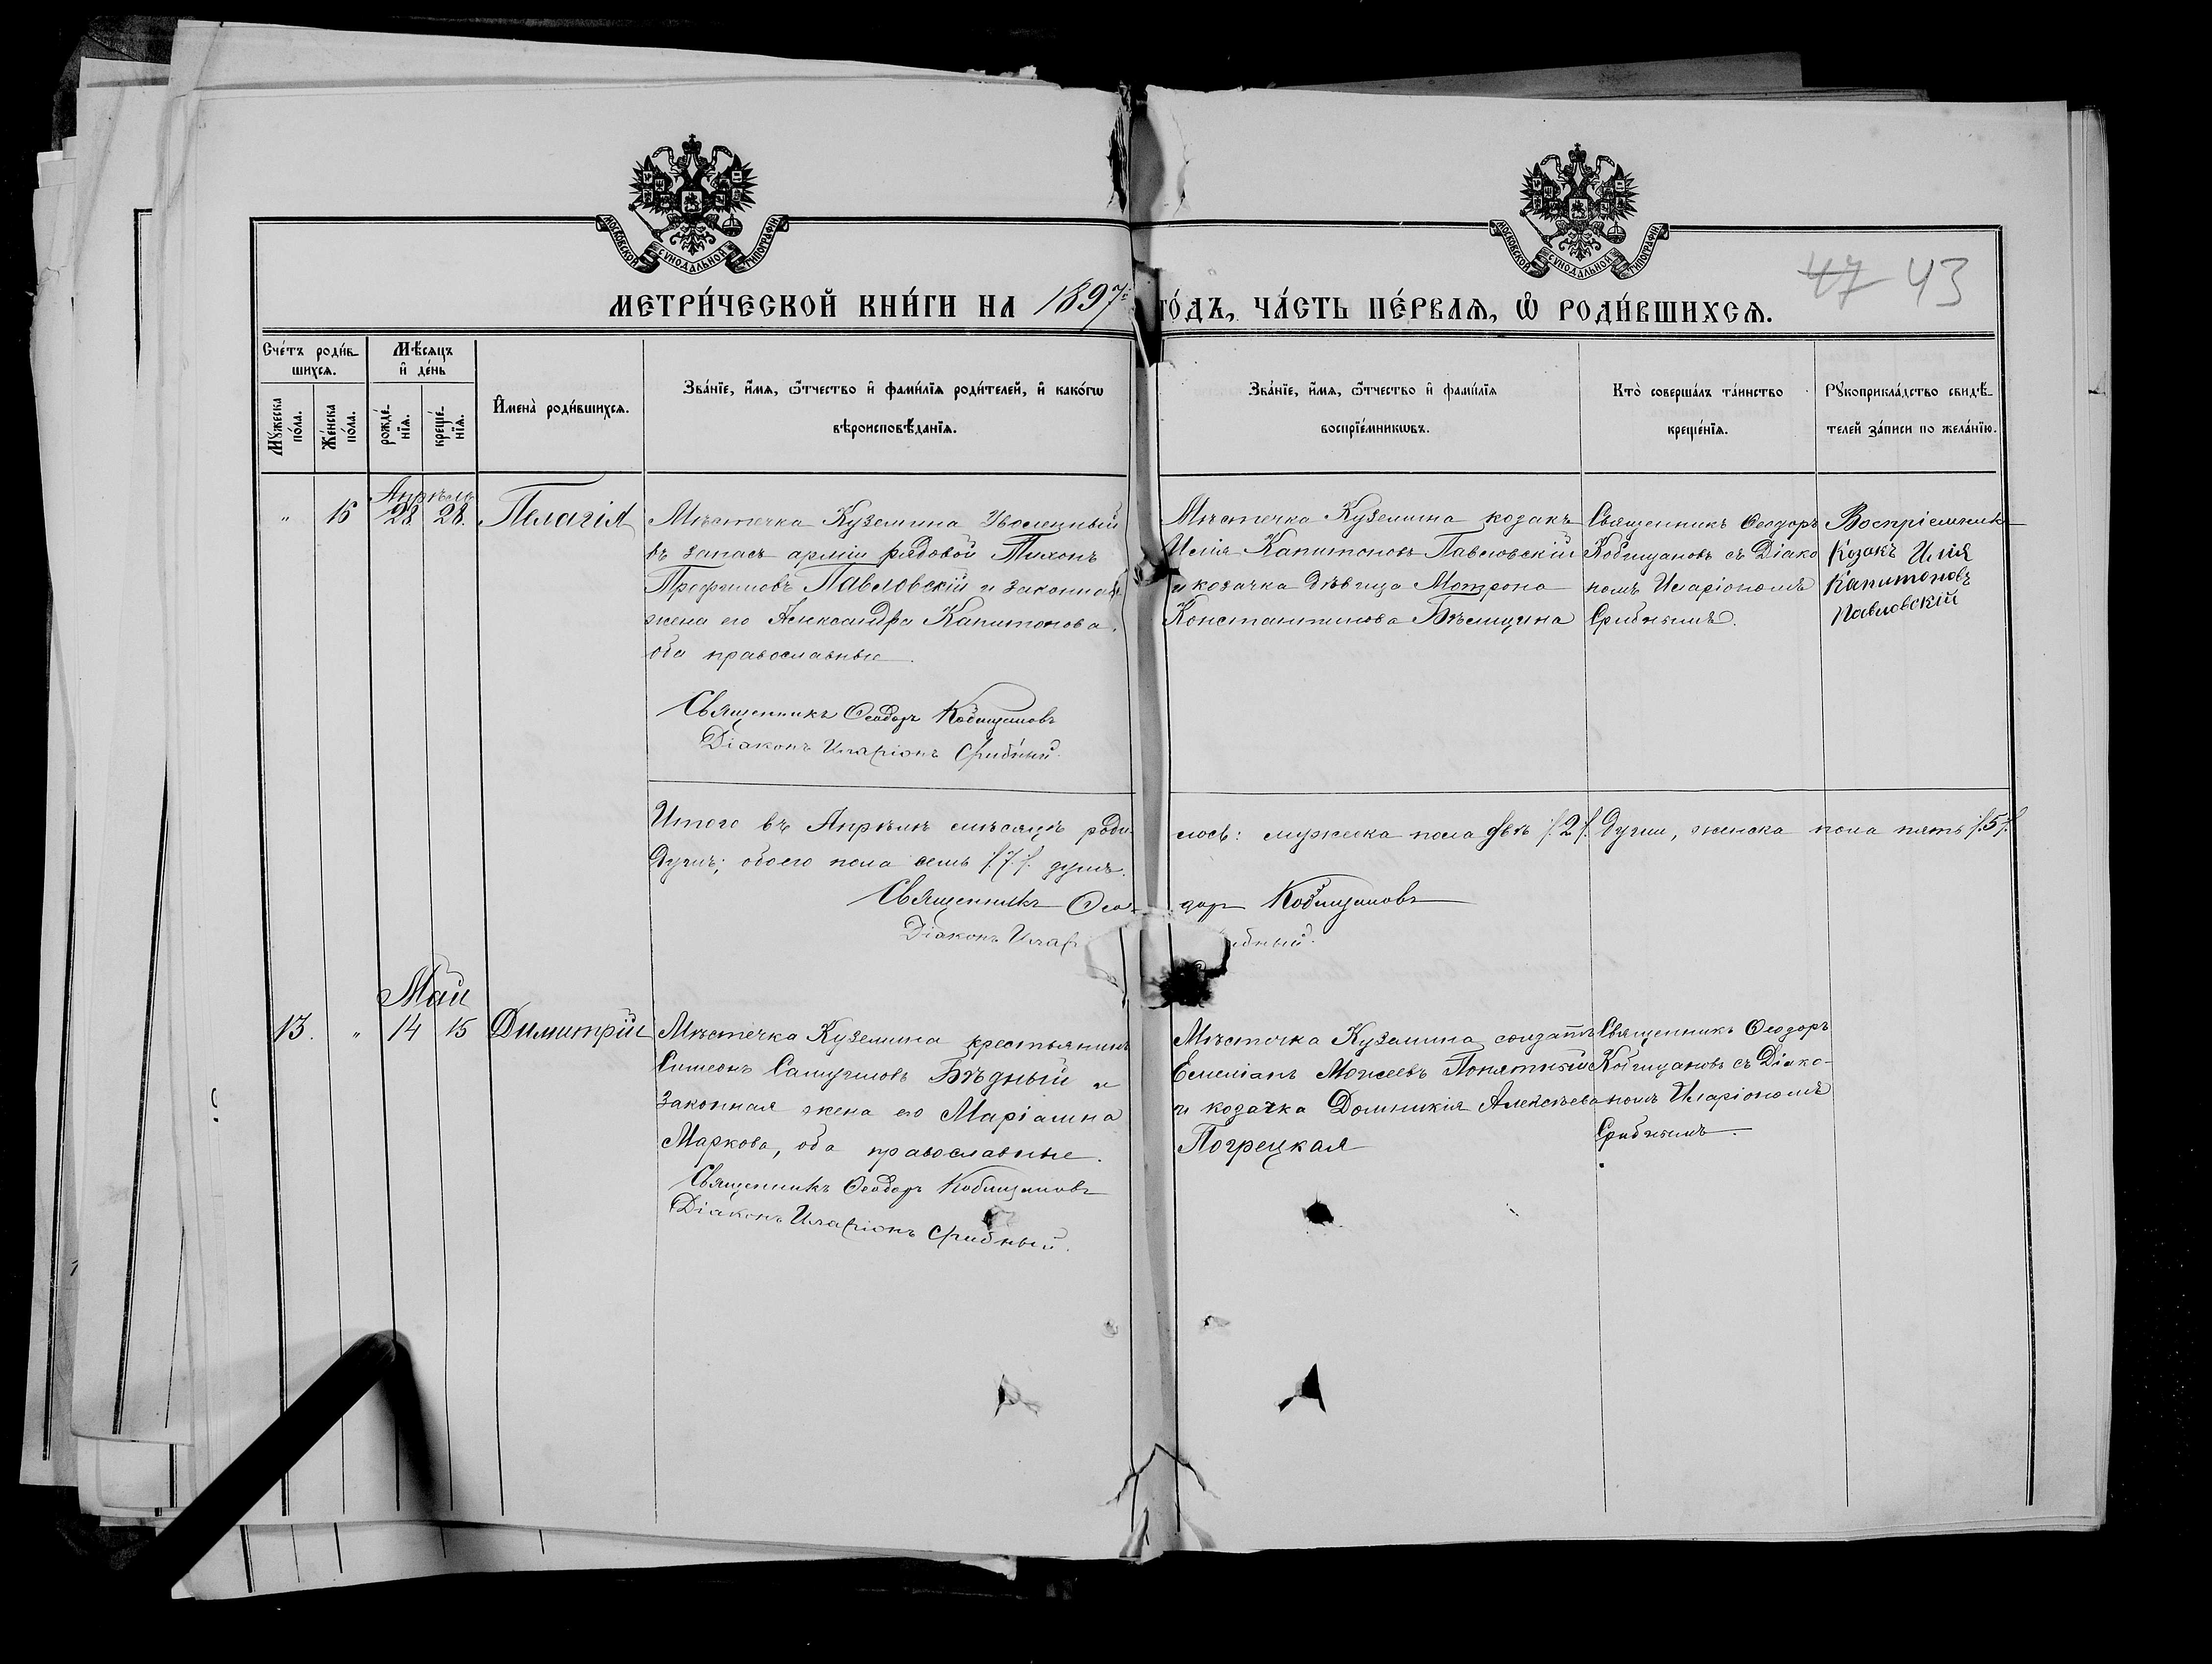 МОСКОВСКОЙ СѴНОДАЛЬНОЙ ТИПОГРАФІИ
МОСКОВСКОЙ СѴНОДАЛЬНОЙ ТИПОГРАФІИ
47 43
МЕТРИ́ЧЕСКОЙ КНИ́ГИ НА 1897й ГО́ДЪ, ЧА́СТЬ ПЕ́РВАѦ, Ѡ҆ РОДИ́ВШИХСѦ.
Сче́тъ роди́в-
шихсѧ.
Мꙋ́жеска по́ла.
Же́нска по́ла.
Мѣ́сѧцъ и҆ де́нь
рожде́-нїѧ.
креще́-нїѧ.
И҆мена̀ роди́вшихсѧ.
Зва́нїе, и҆́мѧ, ѻ҆́тчество и҆ фами́лїѧ роди́телей, и҆ како́гѡ
вѣроисповѣ́данїѧ.
Зва́нїе, и҆́мѧ, ѻ҆́тчество и҆ фами́лїѧ
воспрїе́мникѡвъ.
Кто̀ соверша́лъ та́инство
креще́нїѧ.
Рꙋкоприкла́дство свидѣ́-
телей за́писи по жела́нїю.
Апрѣль
" 15 28 28. Пелагія
Мѣстечка Куземина Уволенный
въ запасъ арміи рядовой Тихонъ
Трофимовъ Павловскій и законная
жена его Александра Капитонова,
оба православные.
Священникъ Ѳеодоръ Кобищановъ
Діаконъ Иларіонъ Срибный.
Мѣстечка Куземина козакъ
Илія Капитоновъ Павловскій
и козачка дѣвица Мотрона
Константинова Бѣлицина
Священникъ Ѳеодоръ
Кобищановъ съ Діако
номъ Иларіономъ
Срибнымъ.
Воспріемникъ
Козакъ Илія
Капитоновъ
Павловскій
Итого въ Апрѣлѣ мѣсяцѣ роди лось: мужеска пола двѣ /.2./. души, женска пола пять /.5./.
душъ; обоего пола семь /.7./. душъ.
Священникъ Ѳео дор Кобищановъ
Діаконъ Илар ибный.
Май
13. " 14 15 Димитрій
Мѣстечка Куземина крестьянинъ
Симеонъ Самуиловъ Бѣдный и
законная жена его Маріамна
Маркова, оба православные.
Священникъ Ѳеодоръ Кобищановъ
Діаконъ Иларіонъ Срибный.
Мѣстечка Куземина солдатъ
Емеліанъ Моисеевъ Понятный
и козачка Домникія Алексѣева
Погрецкая
Священникъ Ѳеодоръ
Кобищановъ съ Діако-
номъ Иларіономъ
Срибнымъ.